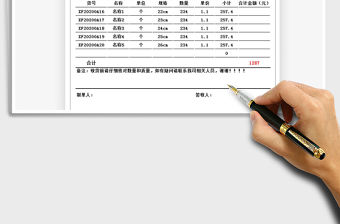 货号 名称 单位 规格 数量 单价 小计 合计金额（元）
XP20200416 名称1 个 22cm 234 1.1 257.4
XP20200417 名称2 个 23cm 234 1.1 257.4
XP20200418 名称3 个 24cm 234 1.1 257.4
XP20200419 名称4 个 25cm 234 1.1 257.4
XP20200420 名称5 个 26cm 234 1.1 257.4
0
合计 1287
备注：收货前请仔细核对数量和质量，如有疑问请联系我司相关人员，谢谢！！！！
制单人： 签收人：